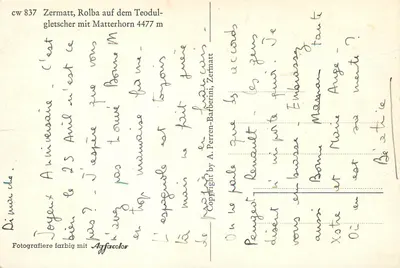 cw 837 Zermatt, Rolba auf dem Teodul-
gletscher mit Matterhorn 4477 m
Dimanche.
Joyeux Anniversaire - C'est
bien le 23 Avril n'est ce
pas? - J'espère que vous
n'avez pas trouvé Bonne M
en trop mauvaise forme -
L'espagnole est toujours
là mais ne fait guère
de progrès en français -
Copyright by A. Perren-Barberini, Zermatt
On ne parle que des accords
Peugeot Renault - les gens
disent n'importe quoi. Je
vous embrasse - Embrassez
aussi Bonne Maman tante
et Marie Ange -
Où en est sa ?
Béatrice
Fotografiere farbig mit Agfacolor